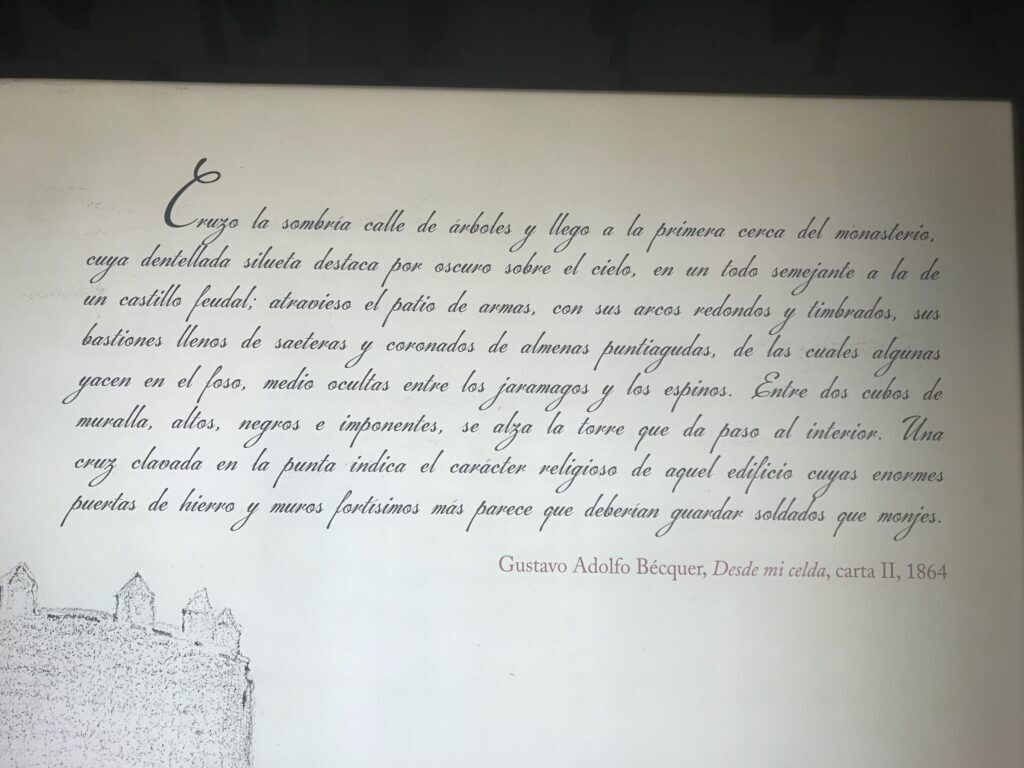 Cruzo la sombría calle de árboles y llego a la primera cerca del monasterio,
cuya dentellada silueta destaca por oscuro sobre el cielo, en un todo semejante a la de
un castillo feudal; atravieso el patio de armas, con sus arcos redondos y timbrados, sus
bastiones llenos de saeteras y coronados de almenas puntiagudas, de las cuales algunas
yacen en el foso, medio ocultas entre los jaramagos y los espinos. Entre dos cubos de
muralla, altos, negros e imponentes, se alza la torre que da paso al interior. Una
cruz clavada en la punta indica el carácter religioso de aquel edificio cuyas enormes
puertas de hierro y muros fortísimos más parece que deberían guardar soldados que monjes.
Gustavo Adolfo Bécquer, Desde mi celda, carta II, 1864